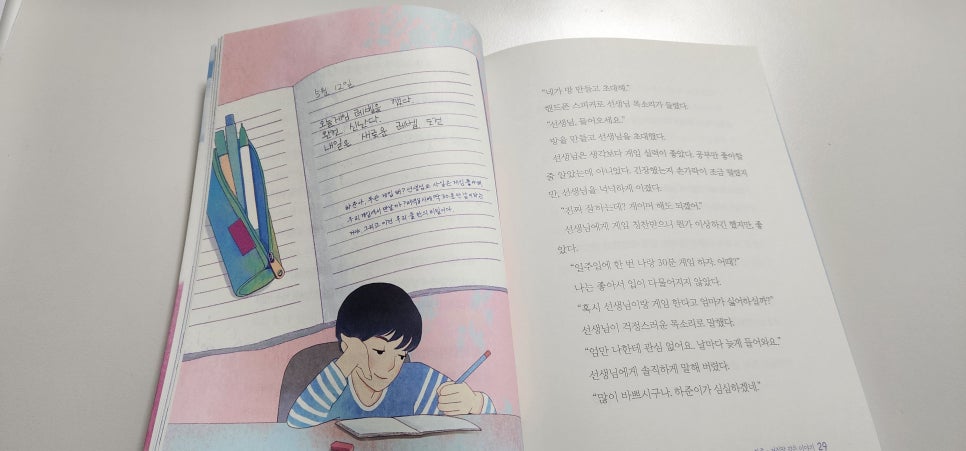 5월 12일
오늘 게임 레벨을 깼다.
완전 신난다.
내일은 새로운 레벨, 도전
하준아, 무슨 게임 해? 선생님도 사실은 게임 좋아해.
우리 게임에서 만날까?
거야. 그리고 이건 우리 둘만의 비밀이다.
“네가 방 만들고 초대해.”
핸드폰 스피커로 선생님 목소리가 들렸다.
“선생님, 들어오세요.”
방을 만들고 선생님을 초대했다.
선생님은 생각보다 게임 실력이 좋았다. 공부만 좋아할
줄 알았는데 아니었다. 긴장했는지 손가락이 조금 떨렸지
만, 선생님을 넉넉하게 이겼다.
“진짜 잘하는데? 게이머 해도 되겠어.”
선생님에게 게임 칭찬받으니 뭔가 이상하긴 했지만, 좋
았다.
“일주일에 한 번 나랑 30분 게임 하자. 어때?”
나는 좋아서 입이 다물어지지 않았다.
“혹시 선생님이랑 게임 한다고 엄마가 싫어하실까?”
선생님이 걱정스러운 목소리로 말했다.
“엄만 나한테 관심 없어요. 날마다 늦게 들어와요.”
선생님에게 솔직하게 말해 버렸다.
“많이 바쁘시구나. 하준이가 심심하겠네.”
이야기 29